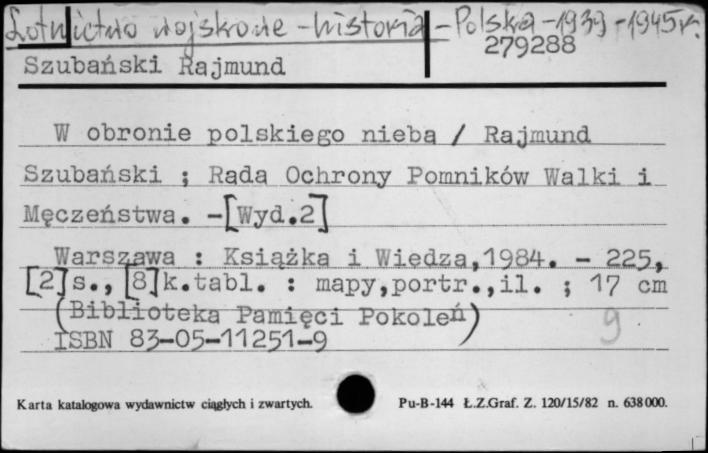 Lotnictwo wojskowe - historia - Polska - 1939 - 1945 r.
279288
Szubański Rajmund
W obronie polskiego nieba / Rajmund
Szubański ; Rada Ochrony Pomników Walki i
Męczeństwa. -[Wyd.2]
Warszawa : Książka i Wiedza,1984. - 225,
[2]s., [8]k.tabl. : mapy,portr.,il. ; 17 cm
(Biblioteka Pamięci Pokoleń)
ISBN 83-05-11251-9
9
Karta katalogowa wydawnictw ciągłych i zwartych.
Pu-B-144 Ł.Z.Graf. Z. 120/15/82 n. 638000.